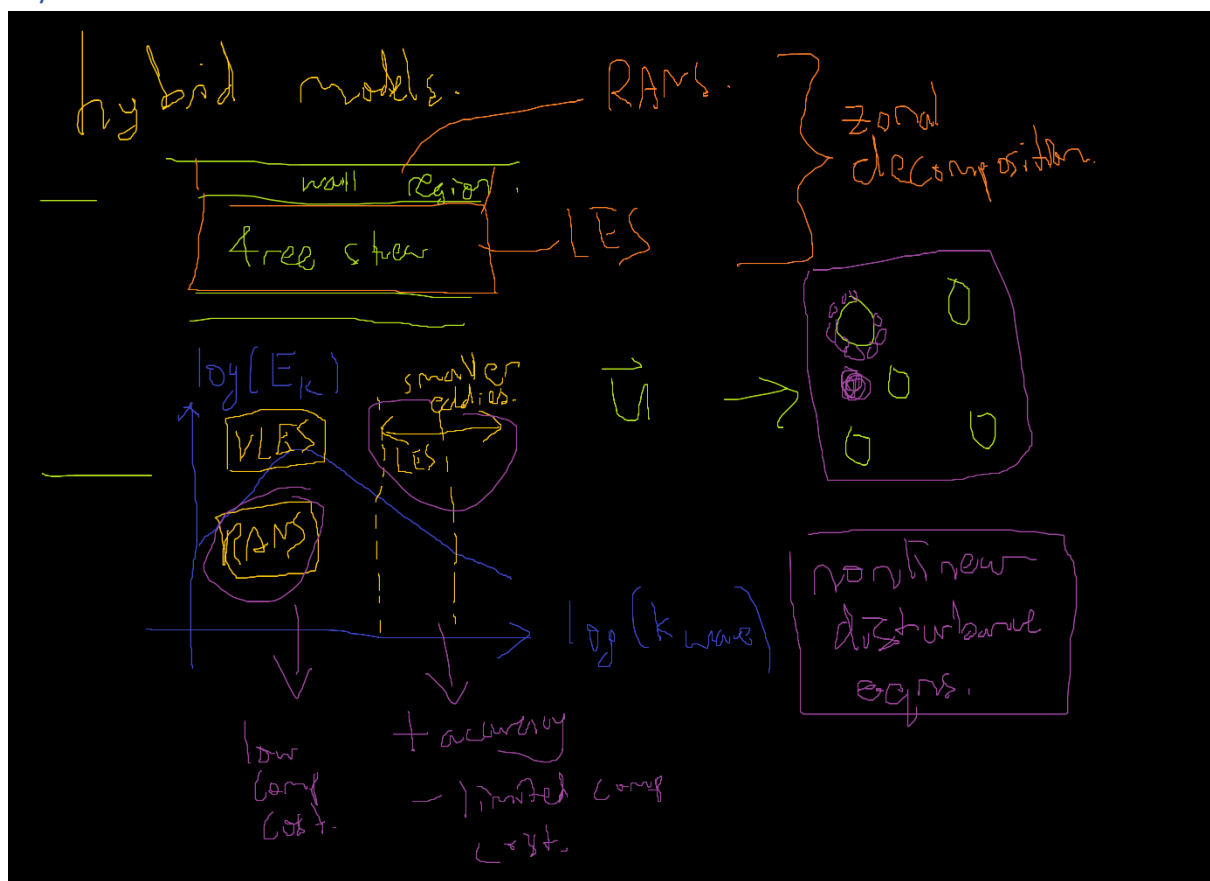 hybrid models.
RANS.
zonal
decomposition.
wall region.
free strea
LES
log(E_k)
smaller
eddies.
VLES
LES
RANS
U
log(k wave)
nonlinear
disturbance
eqns.
low
comp
cost.
+ accuracy
- limited comp
cost.